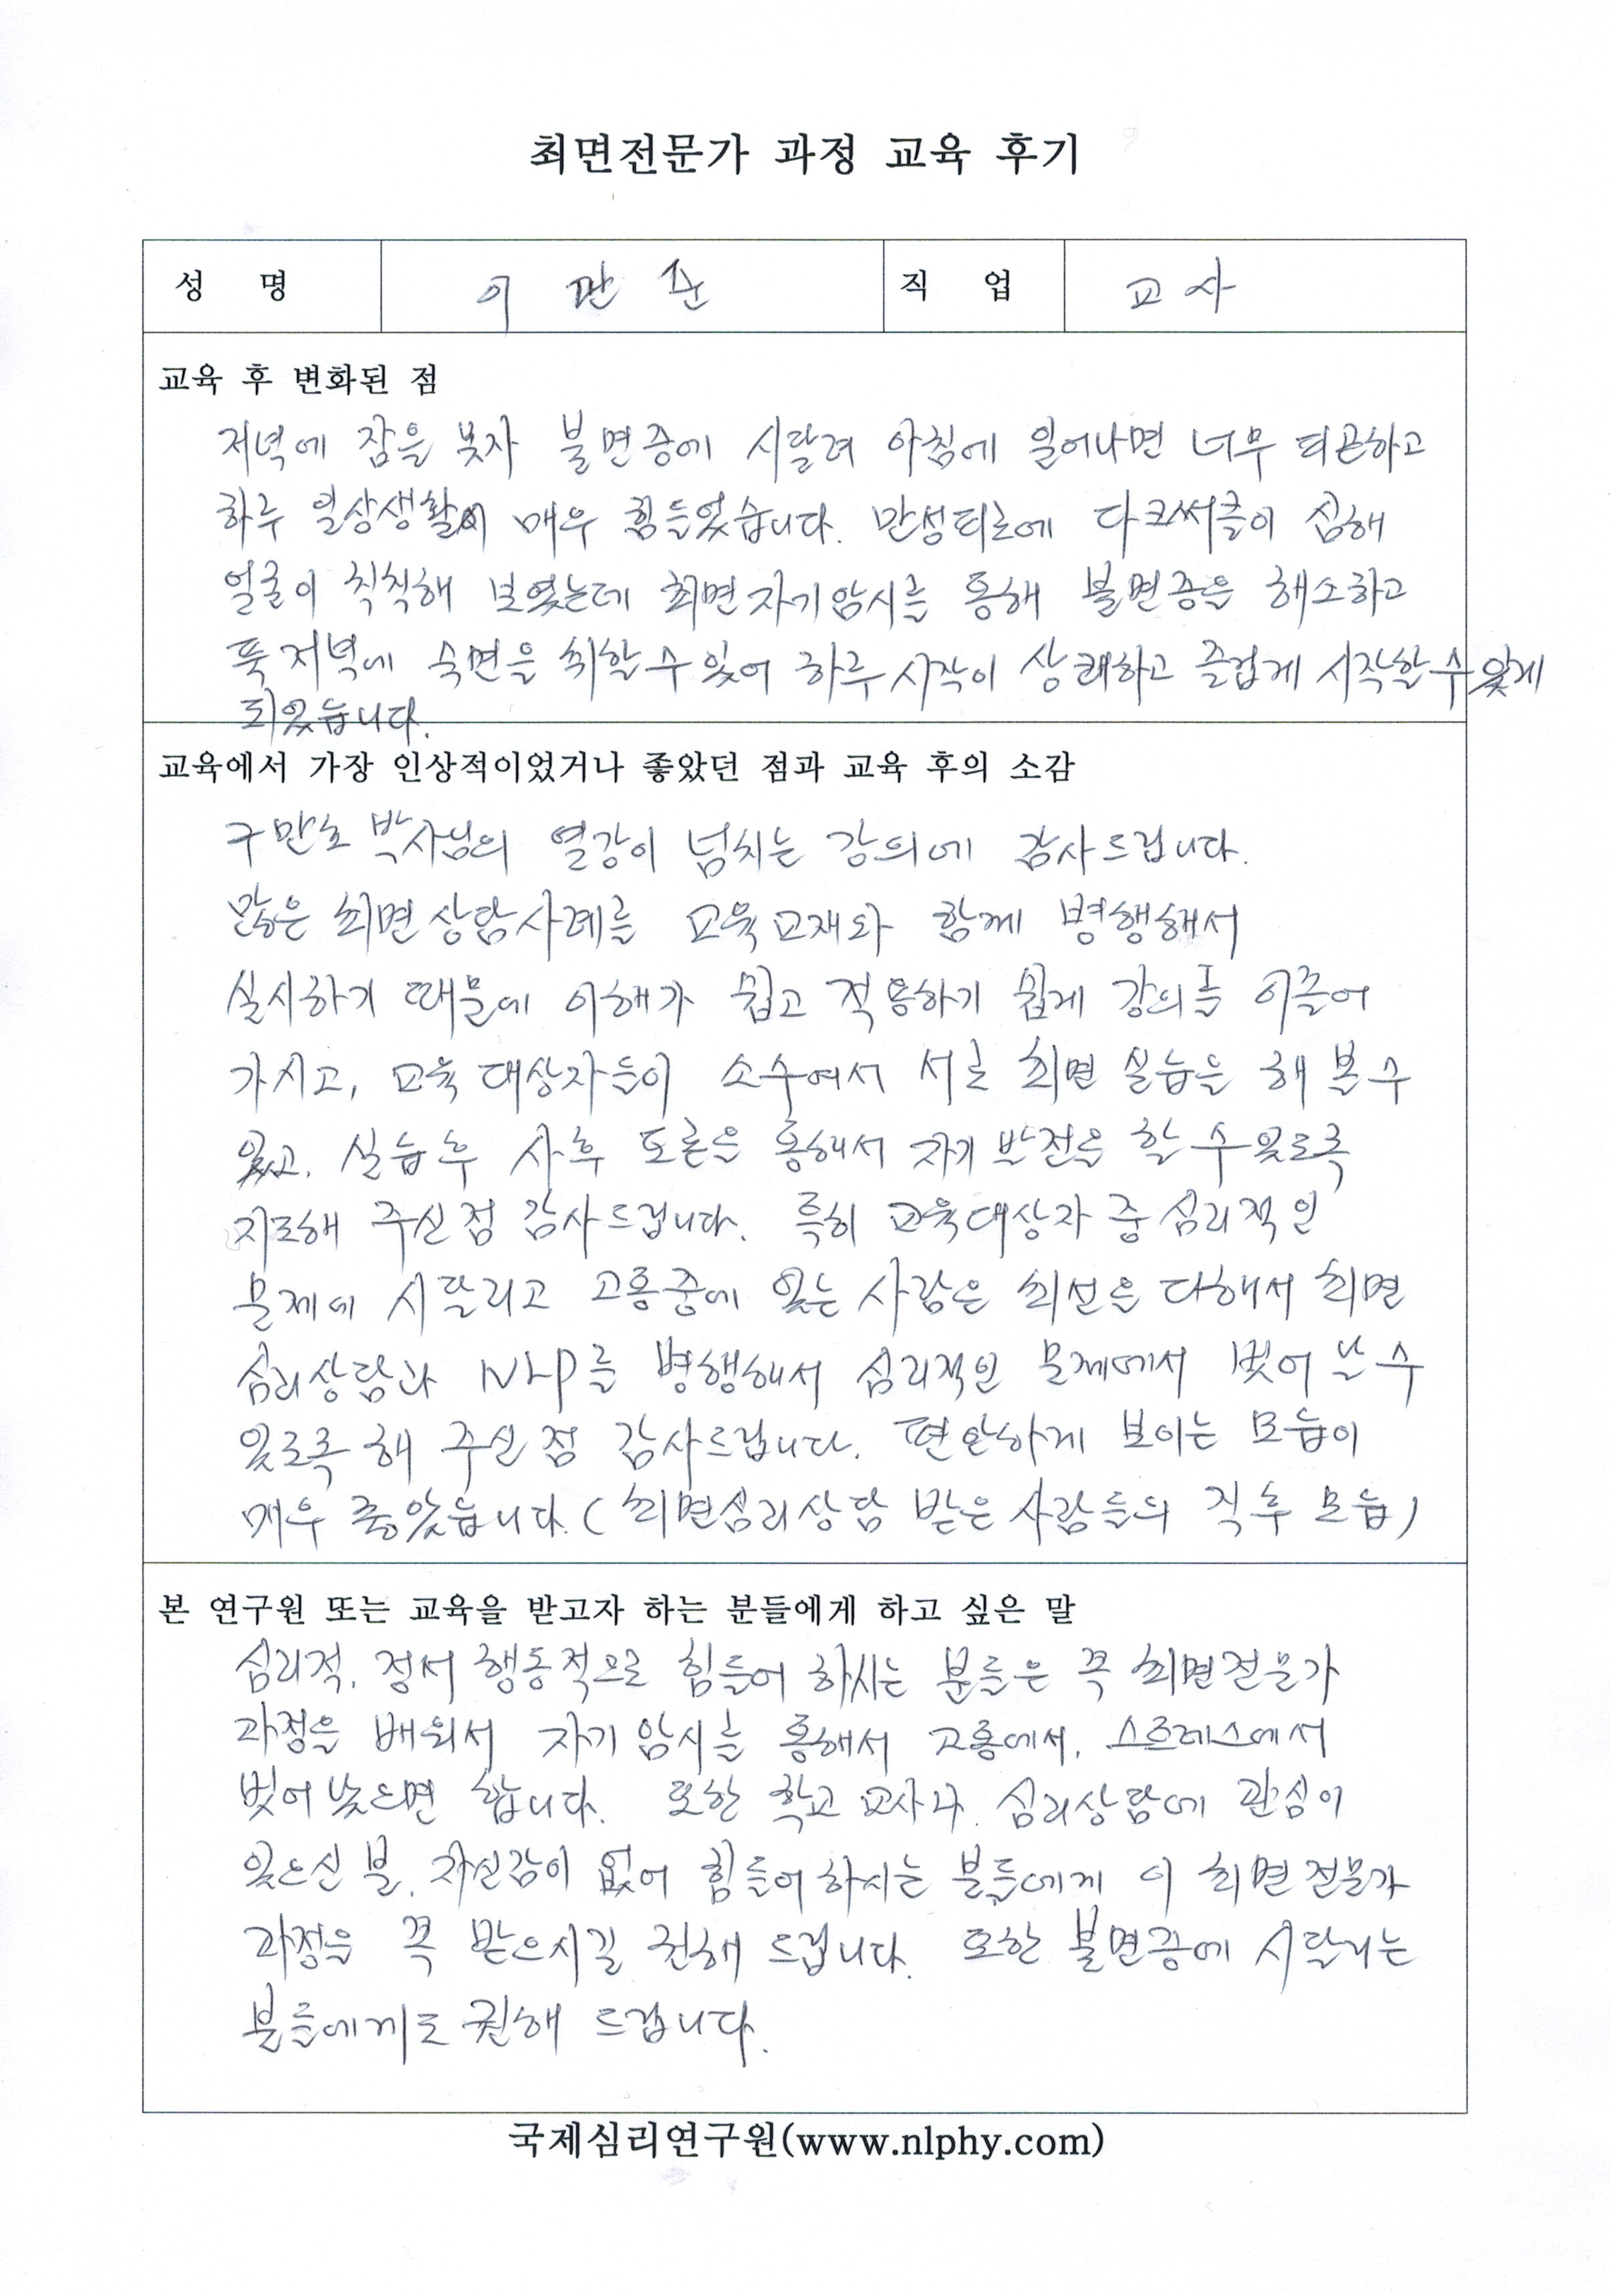 최면전문가 과정 교육 후기
성 명 이 만 준 직 업 교 사
교육 후 변화된 점
저녁에 잠을 못자 불면증에 시달려 아침에 일어나면 너무 피곤하고
하루 일상생활이 매우 힘들었습니다. 만성피로에 다크써클이 심해
얼굴이 칙칙해 보였는데 최면 자기암시를 통해 불면증을 해소하고
푹 저녁에 숙면을 취할 수 있어 하루 시작이 상쾌하고 즐겁게 시작할 수 있게
되었습니다.
교육에서 가장 인상적이었거나 좋았던 점과 교육 후의 소감
구만호 박사님의 열강이 넘치는 강의에 감사드립니다.
많은 최면상담사례를 교육교재와 함께 병행해서
실시하기 때문에 이해가 쉽고 적용하기 쉽게 강의를 이끌어
가시고, 교육 대상자들이 소수여서 서로 최면 실습을 해 볼 수
있고, 실습 후 사후 토론을 통해서 자기 발전을 할 수 있도록
지도해 주신 점 감사드립니다. 특히 교육대상자 중 심리적인
문제에 시달리고 고통중에 있는 사람은 최선을 다해서 최면
심리상담과 NLP를 병행해서 심리적인 문제에서 벗어 날 수
있도록 해 주신 점 감사드립니다. 편안하게 보이는 모습이
매우 좋았습니다. (최면심리상담 받은 사람들의 직후 모습)
본 연구원 또는 교육을 받고자 하는 분들에게 하고 싶은 말
심리적, 정서 행동적으로 힘들어 하시는 분들은 꼭 최면전문가
과정을 배워서 자기 암시를 통해서 고통에서, 스트레스에서
벗어 났으면 합니다. 또한 학교 교사나, 심리상담에 관심이
있으신 분, 자신감이 없어 힘들어 하시는 분들에게 이 최면전문가
과정을 꼭 받으시길 권해 드립니다. 또한 불면증에 시달리는
분들에게도 권해 드립니다.
국제심리연구원(www.nlphy.com)